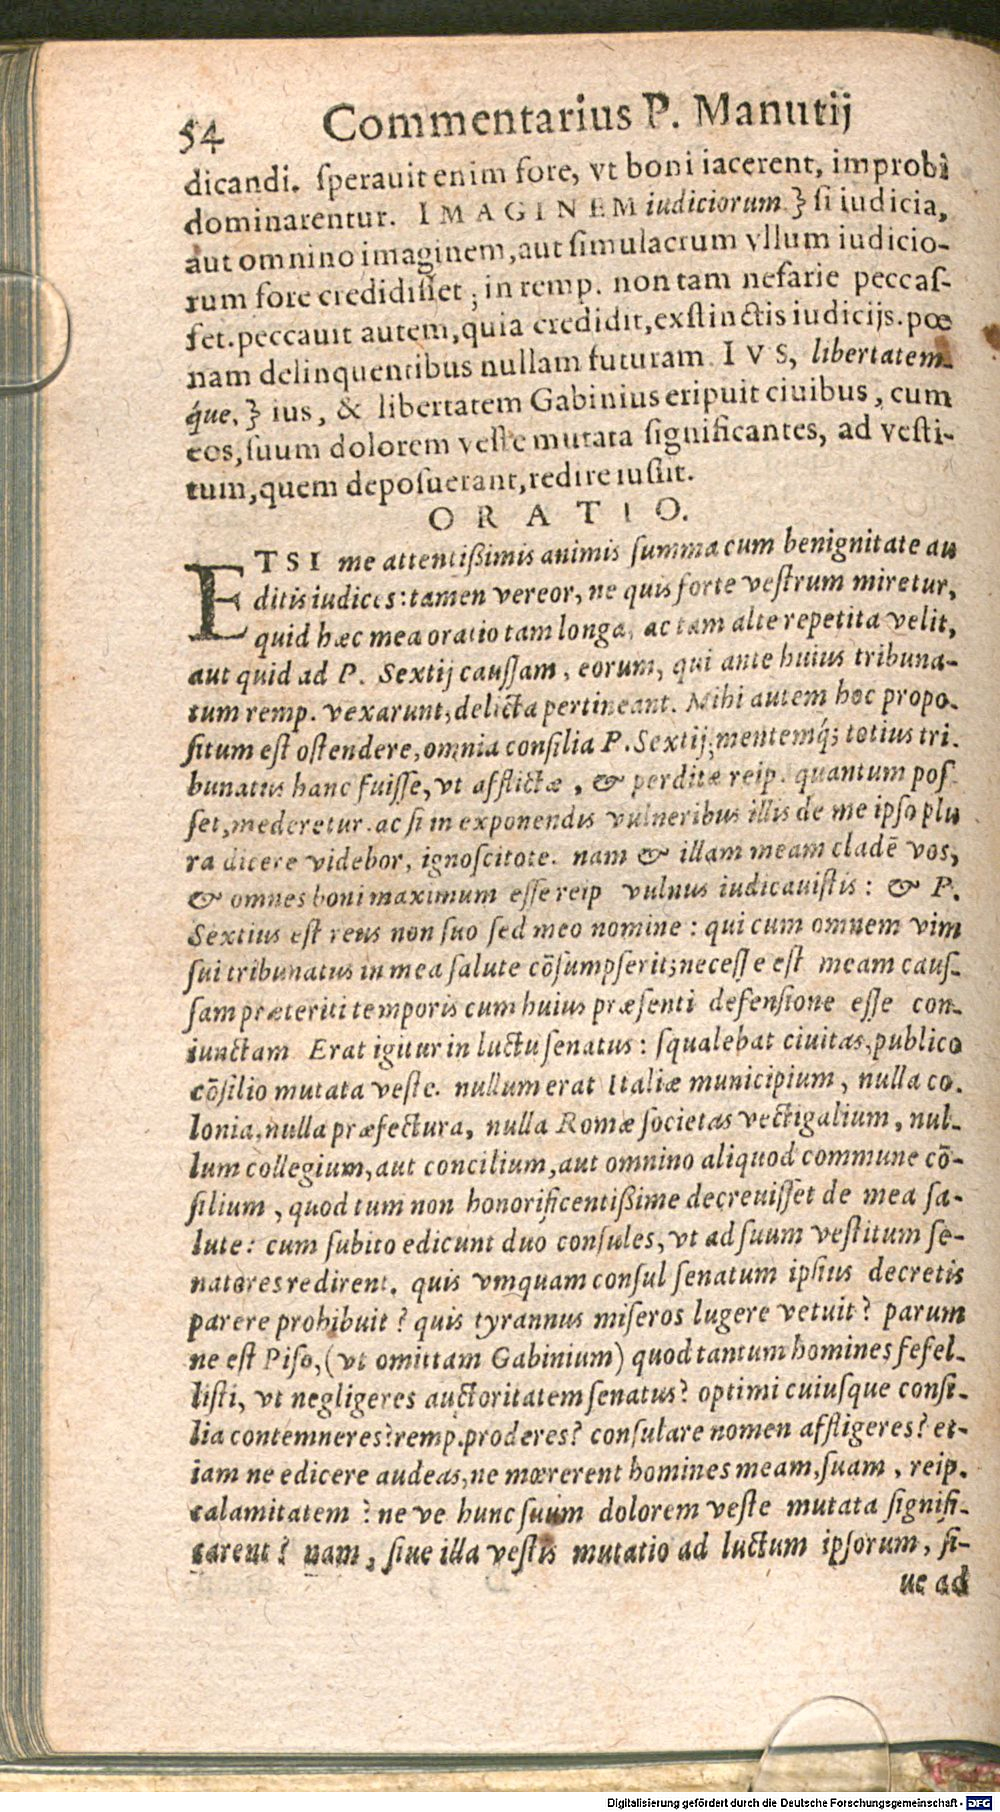 54 Commentarius P. Manutij
dicandi. ſperauit enim fore, vt boni iacerent, improbi
dominarentur. IMAGINEM iudiciorum.} ſi iudicia,
aut omnino imaginem, aut ſimulacrum vllum iudicio-
rum fore credidiſſet; in remp. non tam nefarie peccaſ-
ſet. peccauit autem, quia credidit, exſtinctis iudicijs. pœ
nam delinquentibus nullam futuram. IVS, libertatem-
q́ue.} ius, & libertatem Gabinius eripuit ciuibus, cum
eos, ſuum dolorem veſte mutata ſignificantes, ad veſti-
tum, quem depoſuerant, redire iuſsit.
ORATIO.
ETSI me attentißimis animis ſumma cum benignitate au
ditis iudices: tamen vereor, ne quis forte veſtrum miretur,
quid hæc mea oratio tam longa, ac tam alte repetita velit,
aut quid ad P. Sextij cauſſam, eorum, qui ante huius tribuna-
tum remp. vexarunt, delicta pertineant. Mihi autem hoc propo-
ſitum eſt oſtendere, omnia conſilia P. Sextij, mentemq́; totius tri-
bunatus hanc fuiſſe, vt afflictæ, & perditæ reip. quantum poſ-
ſet, mederetur. ac ſi in exponendis vulneribus illis de me ipſo plu
ra dicere videbor, ignoſcitote. nam & illam meam cladē vos,
& omnes boni maximum eſſe reip vulnus iudicauiſtis: & P.
Sextius eſt reus non ſuo ſed meo nomine: qui cum omnem vim
ſui tribunatus in mea ſalute cōſumpſerit; neceſſe eſt meam cauſ-
ſam præteriti temporis cum huius præſenti defenſione eſſe con-
iunctam Erat igitur in luctu ſenatus: ſqualebat ciuitas, publico
cōſilio mutata veſte. nullum erat Italiæ municipium, nulla co-
lonia, nulla præfectura, nulla Romæ ſocietas vectigalium, nul-
lum collegium, aut concilium, aut omnino aliquod commune cō-
ſilium, quod tum non honorificentißime decreuiſſet de mea ſa-
lute: cum ſubito edicunt duo conſules, vt ad ſuum veſtitum ſe-
natores redirent. quis vmquam conſul ſenatum ipſius decretis
parere prohibuit? quis tyrannus miſeros lugere vetuit? parum
ne eſt Piſo, (vt omittam Gabinium) quod tantum homines fefel-
liſti, vt negligeres auctoritatem ſenatus? optimi cuiuſque conſi-
lia contemneres? remp. proderes? conſulare nomen affligeres? et-
iam ne edicere audeas, ne mœrerent homines meam, ſuam, reip.
calamitatem? ne ve hunc ſuum dolorem veſte mutata ſignifi-
carent? nam, ſiue illa veſtis mutatio ad luctum ipſorum, ſi-
ue ad
Digitalisierung gefördert durch die Deutsche Forschungsgemeinschaft - DFG